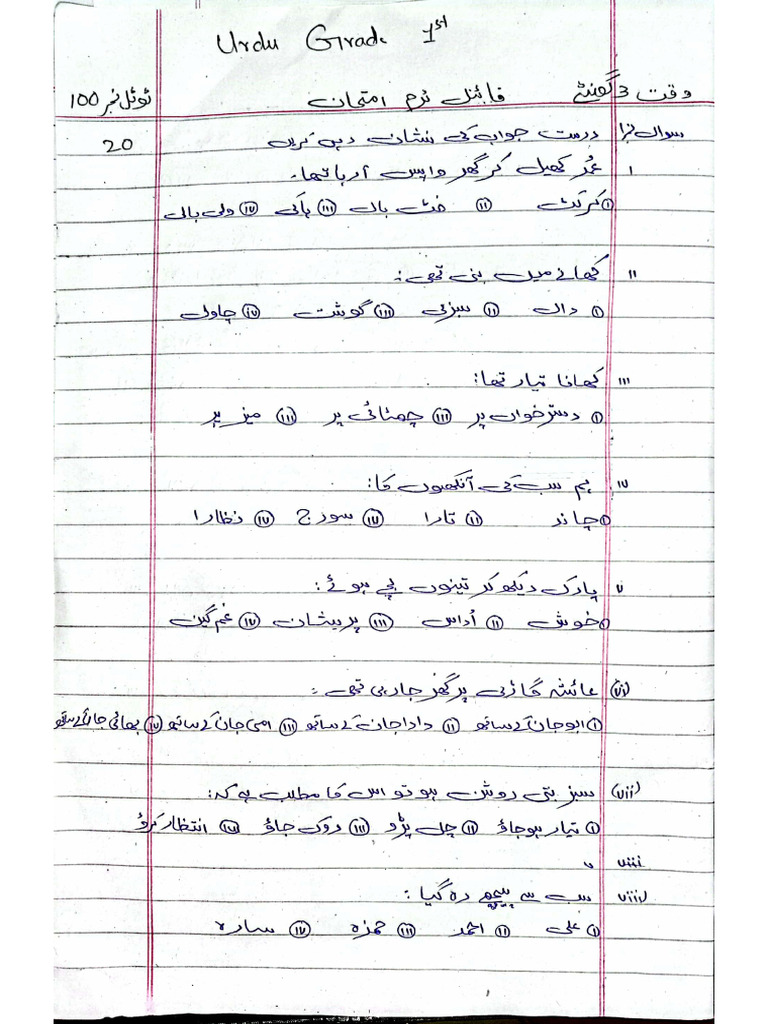 Urdu Grade 1st
وقت 3 گھنٹے فائنل ٹرم امتحان ٹوٹل نمبر 100
سوال نمبر1 درست جواب کی نشان دہی کریں 20
i عمر کھیل کر گھر واپس آرہا تھا۔
i کرکٹ ii فٹ بال iii ہاکی iv والی بال
ii کھانے میں بنی تھی:
i دال ii سبزی iii گوشت iv چاول
iii کھانا تیار تھا:
i دسترخوان پر iii چھٹائی پر iii میز پر
iv ہم سب کی آنکھوں کا:
i چاند ii تارا iv سورج iv نظارا
v پارک دیکھ کر تینوں بچے ہوئے:
i خوش ii اُداس iii پریشان iv غم گین
(vi) عائشہ گاڑی پر گھر جارہی تھی:
i ابو جان کے ساتھ ii دادا جان کے ساتھ iii امی جان کے ساتھ iv بھائی جان کے ساتھ
(vii) سبز بتی روشن ہو تو اس کا مطلب ہے کہ:
i تیار ہوجاؤ ii چل پڑو iii روک جاؤ iv انتظار کرو
viii
viii) سب سے پیچھے رہ گیا:
i علی ii احمد iii حمزہ iv سارہ